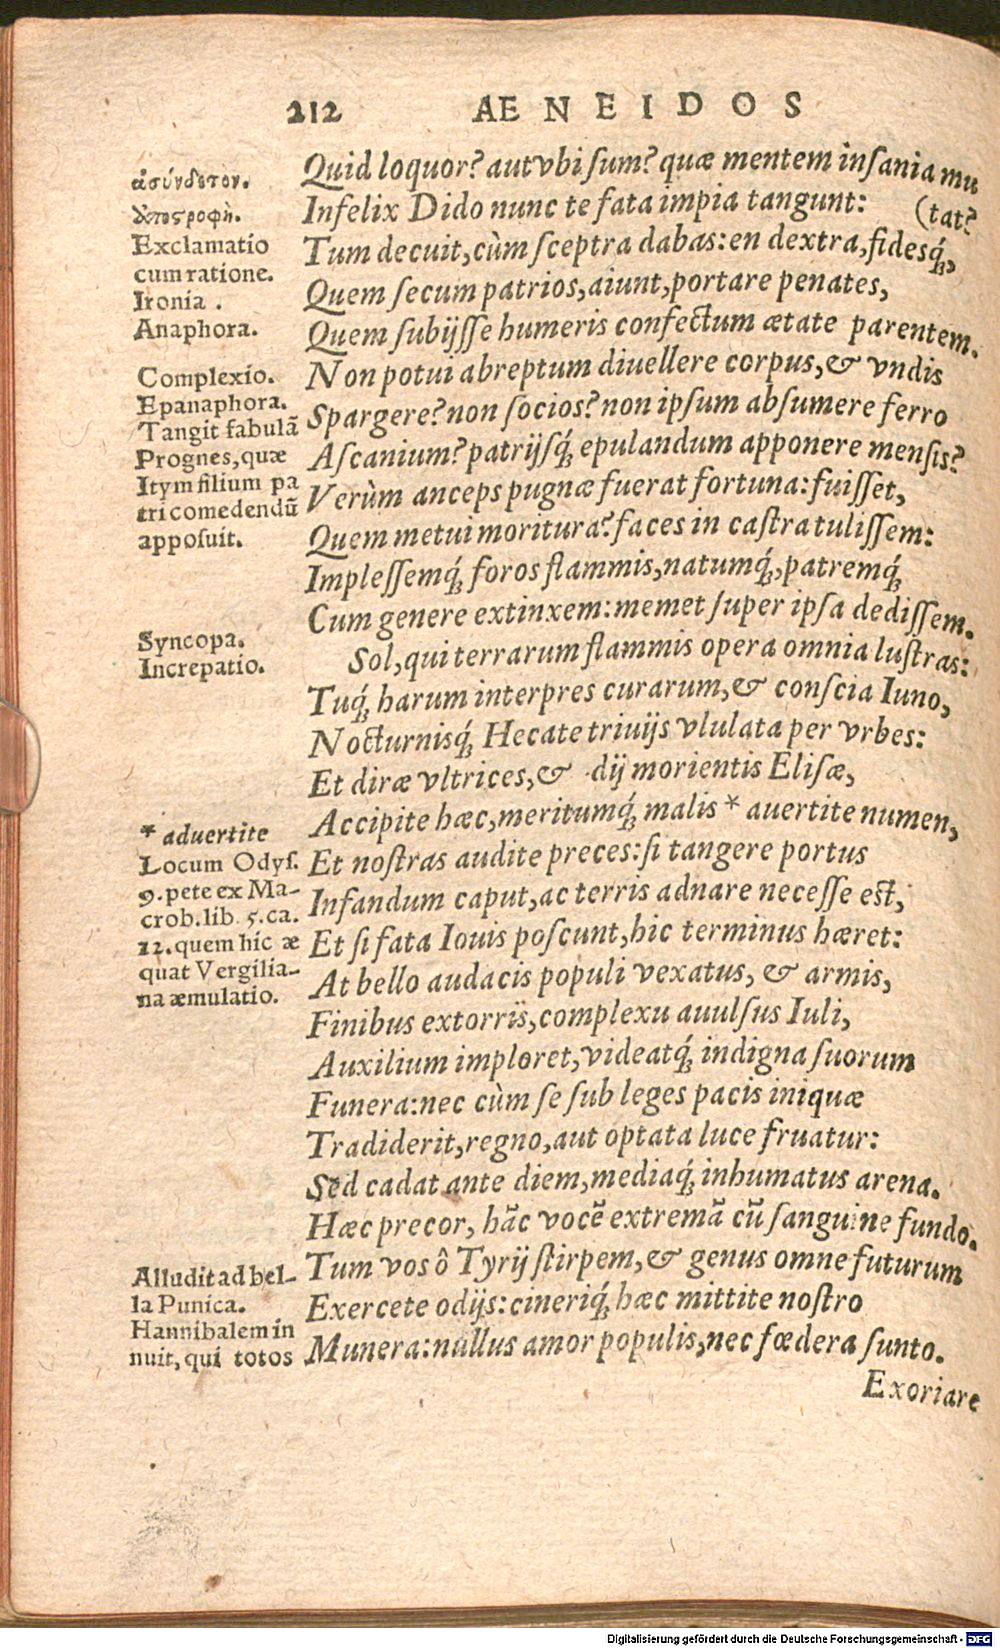 212 AENEIDOS
Quid loquor? aut vbi sum? quæ mentem insania mu
Infelix Dido nunc te fata impia tangunt: (tat?
Tum decuit, cùm sceptra dabas: en dextra, fidesq́;,
Quem secum patrios, aiunt, portare penates,
Quem subijsse humeris confectum ætate parentem.
Non potui abreptum diuellere corpus, & vndis
Spargere? non socios? non ipsum absumere ferro
Ascanium? patrijsq́; epulandum apponere mensis?
Verùm anceps pugnæ fuerat fortuna: fuisset,
Quem metui moritura? faces in castra tulissem:
Implessemq́; foros flammis, natumq́;, patremq́;
Cum genere extinxem: memet super ipsa dedissem.
Sol, qui terrarum flammis opera omnia lustras:
Tuq́; harum interpres curarum, & conscia Iuno,
Nocturnisq́; Hecate triuijs vlulata per vrbes:
Et diræ vltrices, & dij morientis Elisæ,
Accipite hæc, meritumq́; malis * auertite numen,
Et nostras audite preces: si tangere portus
Infandum caput, ac terris adnare necesse est,
Et si fata Iouis poscunt, hic terminus hæret:
At bello audacis populi vexatus, & armis,
Finibus extorris, complexu auulsus Iuli,
Auxilium imploret, videatq́; indigna suorum
Funera: nec cùm se sub leges pacis iniquæ
Tradiderit, regno, aut optata luce fruatur:
Sed cadat ante diem, mediaq́; inhumatus arena.
Hæc precor, hãc vocẽ extremã cũ sanguine fundo.
Tum vos ô Tyrij stirpem, & genus omne futurum
Exercete odijs: cineriq́; hæc mittite nostro
Munera: nullus amor populis, nec fœdera sunto.
Exoriare
ἀσύνδετον.
ἀποστροφὴ.
Exclamatio
cum ratione.
Ironia.
Anaphora.
Complexio.
Epanaphora.
Tangit fabulã
Prognes, quæ
Itym filium pa
tri comedendũ
apposuit.
Syncopa.
Increpatio.
* aduertite
Locum Odys.
9. pete ex Ma-
crob. lib. 5. ca.
12. quem hic æ
quat Vergilia-
na æmulatio.
Alludit ad bel-
la Punica.
Hannibalem in
nuit, qui totos
Digitalisierung gefördert durch die Deutsche Forschungsgemeinschaft - DFG